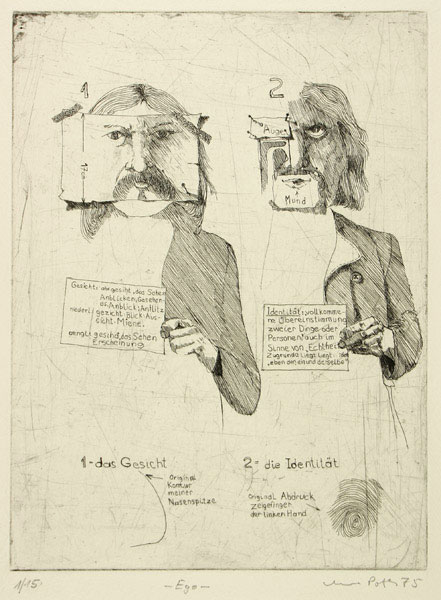 1
2
Auge
Mund
Gesicht: ahd gesiht, das Sehen
Anblicken, Gesehen-
Anblick: Antlitz
niederl: gezicht: Blick-Aus-
sicht-Miene.
mengl: gesihd, das Sehen
Erscheinung
Identität: vollkomme-
ne Übereinstimmung
zweier Dinge oder
Personen: auch im
Sinne von Echtheit
Zugrunde liegt
"eben der, ein und derselbe"
1-das Gesicht
2= die Identität
Original
Kontur
meiner
Nasenspitze
Original Abdruck
Zeigefinger
der linken Hand
1/15
- Ego -
75